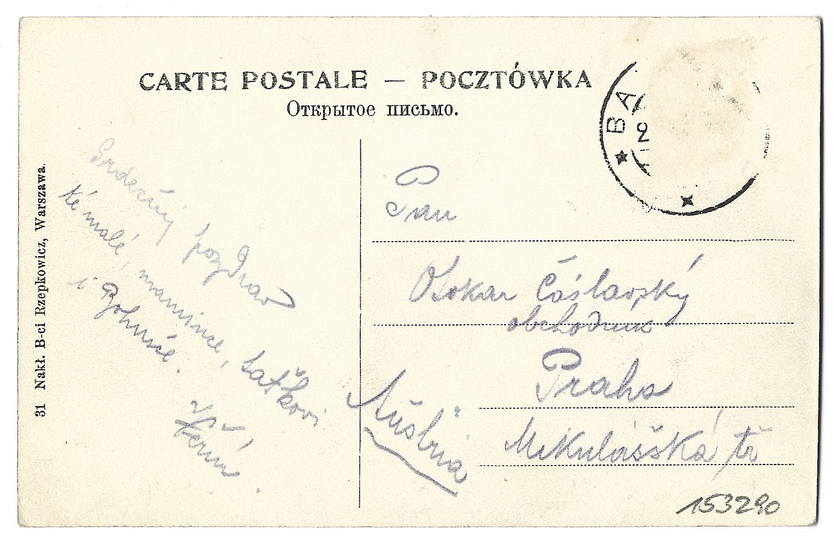 CARTE POSTALE — POCZTÓWKA
Открытое письмо.
31 Nakł. B-ci Rzepkowicz, Warszawa.
BA
2
Srdečný pozdrav
malé, mamince, taťkovi
i
Váš
Pan
Oskar Čáslavský
obchodník
Praha
Mikulášská tř
Austria
153290